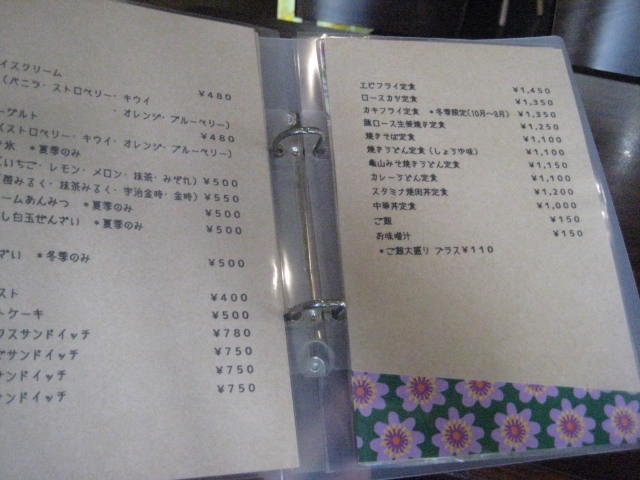 イスクリーム
（バニラ・ストロベリー・キウイ ¥480
オレンジ・ブルーベリー）
ーグルト
（ストロベリー・キウイ・オレンジ・ブルーベリー） ¥480
氷 ＊夏季のみ
いちご・レモン・メロン・抹茶・みぞれ） ¥500
みるく・抹茶みるく・宇治金時・金時） ¥550
ームあんみつ ＊夏季のみ ¥500
し白玉ぜんざい ＊夏季のみ ¥500
ざい ＊冬季のみ ¥500
スト ¥400
トケーキ ¥500
クスサンドイッチ ¥780
サンドイッチ ¥750
サンドイッチ ¥750
サンドイッチ ¥750
エビフライ定食 ¥1,450
ロースカツ定食 ¥1,350
カキフライ定食 ＊冬季限定(10月〜3月) ¥1,350
豚ロース生姜焼き定食 ¥1,250
焼きそば定食 ¥1,100
焼きうどん定食（しょうゆ味） ¥1,100
亀山みそ焼きうどん定食 ¥1,150
カレーうどん定食 ¥1,100
スタミナ焼肉丼定食 ¥1,200
中華丼定食 ¥1,000
ご飯 ¥150
お味噌汁 ¥150
＊ご飯大盛り プラス¥110